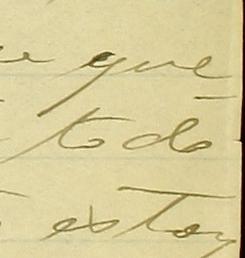 que
todo
estoy